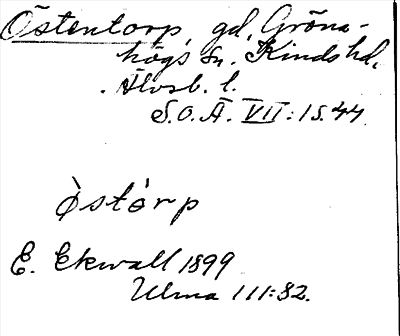 Östentorp, gd, Gröna-
högs sn. Kinds hd,
Älvsb. l.
S.O.Ä. VII: 1 S. 44
Òstórp
E. Ekwall 1899
Ulma 111:82.